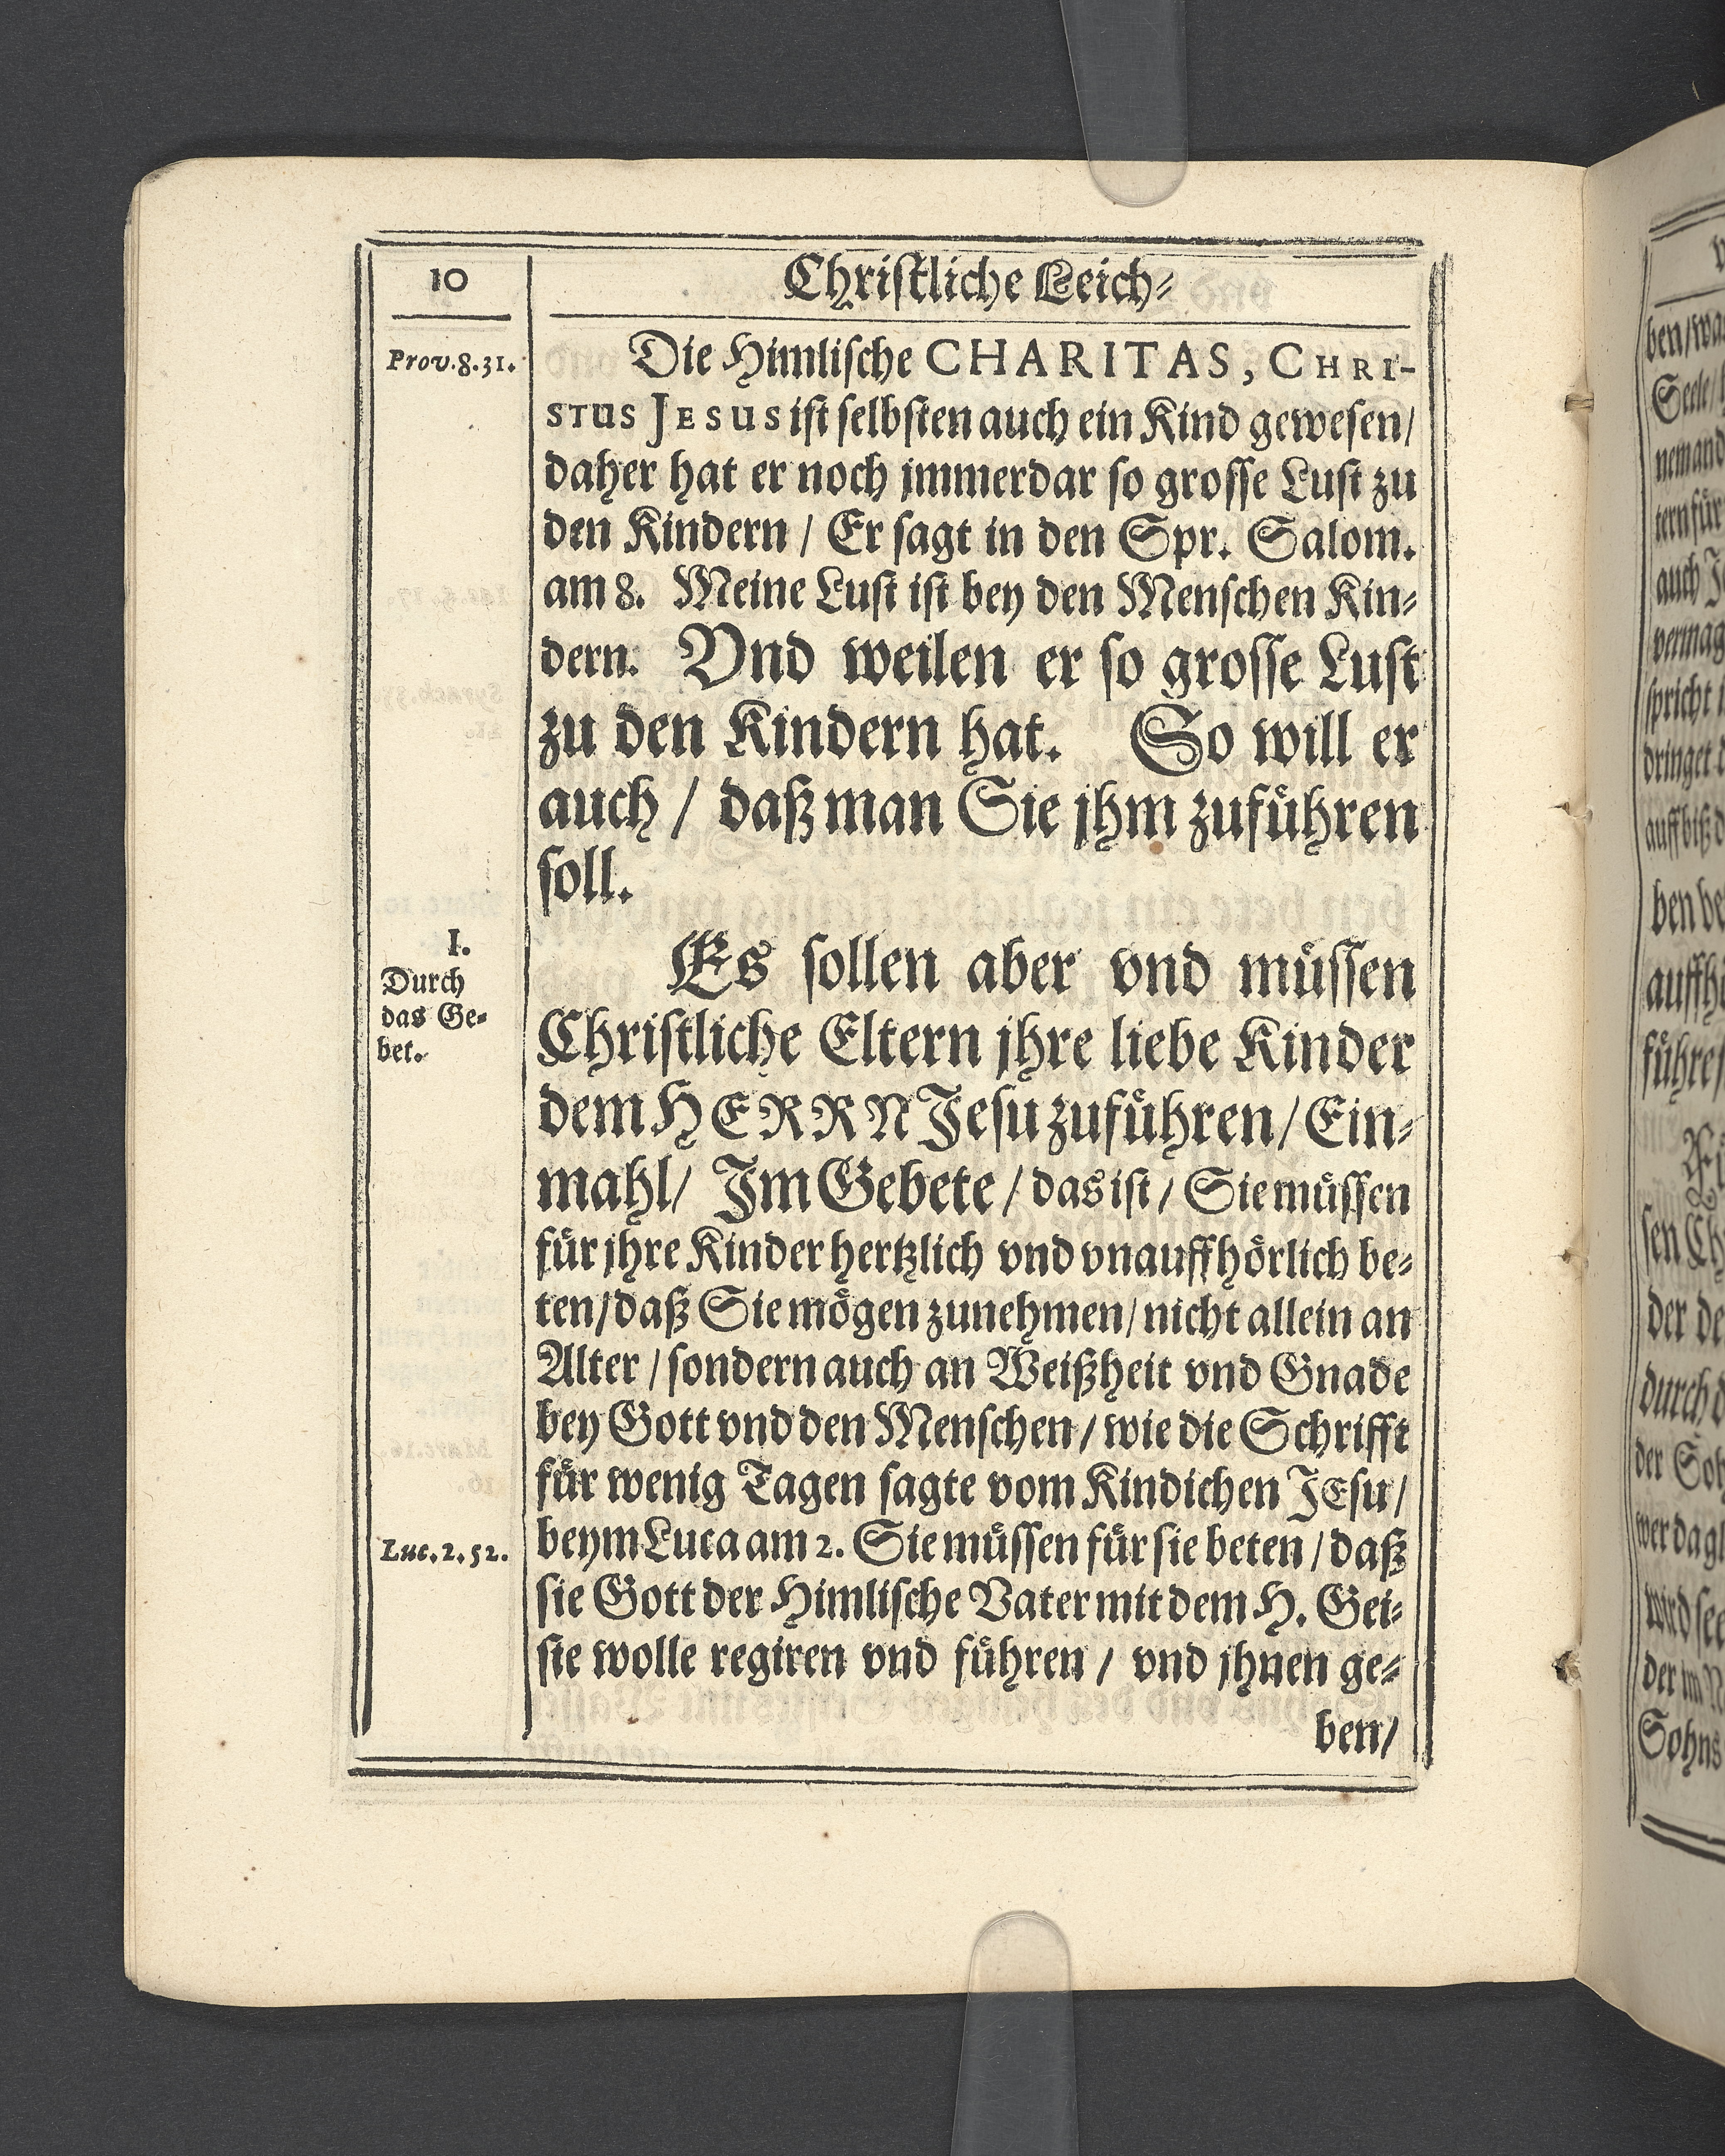 10
Christliche Leich-
Prov. 8. 31.
Die Himlische CHARITAS, CHRI-
STUS JESUS ist selbsten auch ein Kind gewesen/
daher hat er noch jmmerdar so grosse Lust zu
den Kindern / Er sagt in den Spr. Salom.
am 8. Meine Lust ist bey den Menschen Kin-
dern. Vnd weilen er so grosse Lust
zu den Kindern hat. So will er
auch / daß man Sie jhm zuführen
soll.
I.
Durch
das Ge-
bet.
Es sollen aber vnd müssen
Christliche Eltern jhre liebe Kinder
dem HERRN Jesu zuführen / Ein-
mahl / Im Gebete / das ist / Sie müssen
für jhre Kinder hertzlich vnd vnauffhörlich be-
ten / daß Sie mögen zunehmen / nicht allein an
Alter / sondern auch an Weißheit vnd Gnade
bey Gott vnd den Menschen / wie die Schrifft
für wenig Tagen sagte vom Kindichen JEsu /
Luc. 2. 52.
beym Luca am 2. Sie müssen für sie beten / daß
sie Gott der Himlische Vater mit dem H. Gei-
sie wolle regiren vnd führen / vnd jhnen ge-
ben /